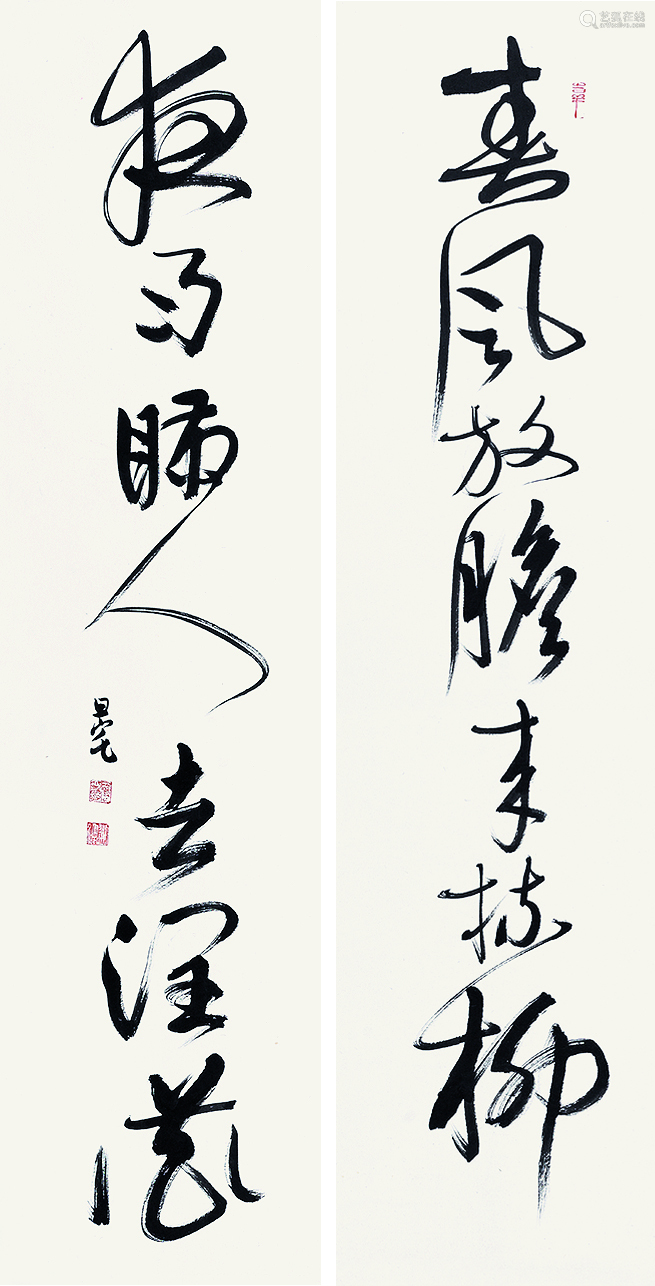 春风放胆来梳柳
夜雨瞒人去润花
艺狐在线